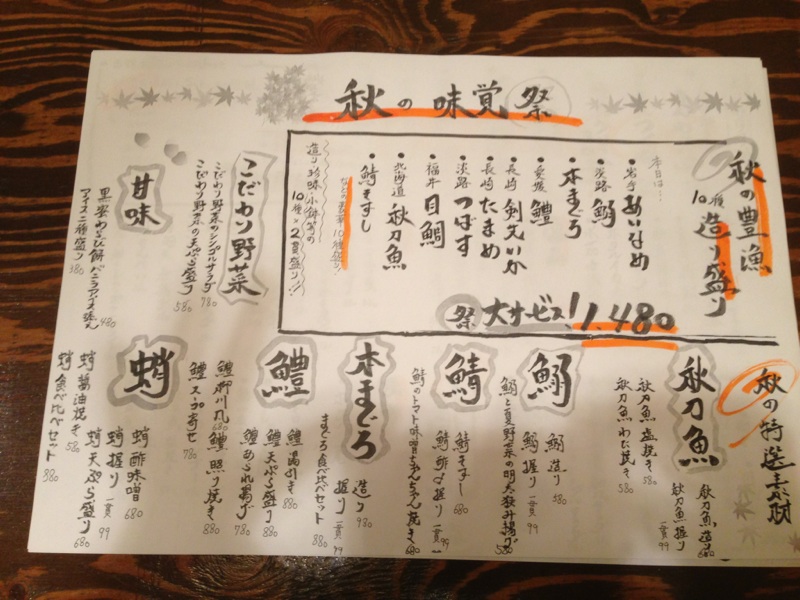 秋の味覚祭
秋の豊漁
10種
造り盛り
本日は…
岩手 あいなめ
淡路 鰯
本まぐろ
愛媛 鱧
長崎 剣先いか
長崎 たまめ
淡路 つばす
福井 目鯛
北海道 秋刀魚
鯖きずし
造り 珍味 小鉢等の
10種×2貫盛り!!
祭 大サービス! 1,480
こだわり野菜
こだわり野菜のシンプルサラダ 780
こだわり野菜の天ぷら盛り 580
甘味
黒蜜わらび餅バニラアイス添え 480
アイス二種盛り 380
秋の特選素材
秋刀魚
秋刀魚造り 680
秋刀魚握り 一貫99
秋刀魚塩焼き 580
秋刀魚わた焼き 580
鰯
鰯造り 580
鰯握り 一貫99
鰯と夏野菜の明太挟み揚げ 580
鯖
鯖きずし 680
鯖酢〆握り 一貫99
鯖のトマト味噌ちゃんちゃん焼き 680
本まぐろ
造り 980
握り 一貫99
まぐろ食べ比べセット 880
鱧
鱧湯引き 880
鱧天ぷら盛り 880
鱧あられ揚げ 780
鱧柳川風 680
鱧照り焼き 880
鱧スープ寄せ 780
蛸
蛸酢味噌 680
蛸握り 一貫99
蛸天ぷら盛り 680
蛸醤油焼き 580
蛸食べ比べセット 880